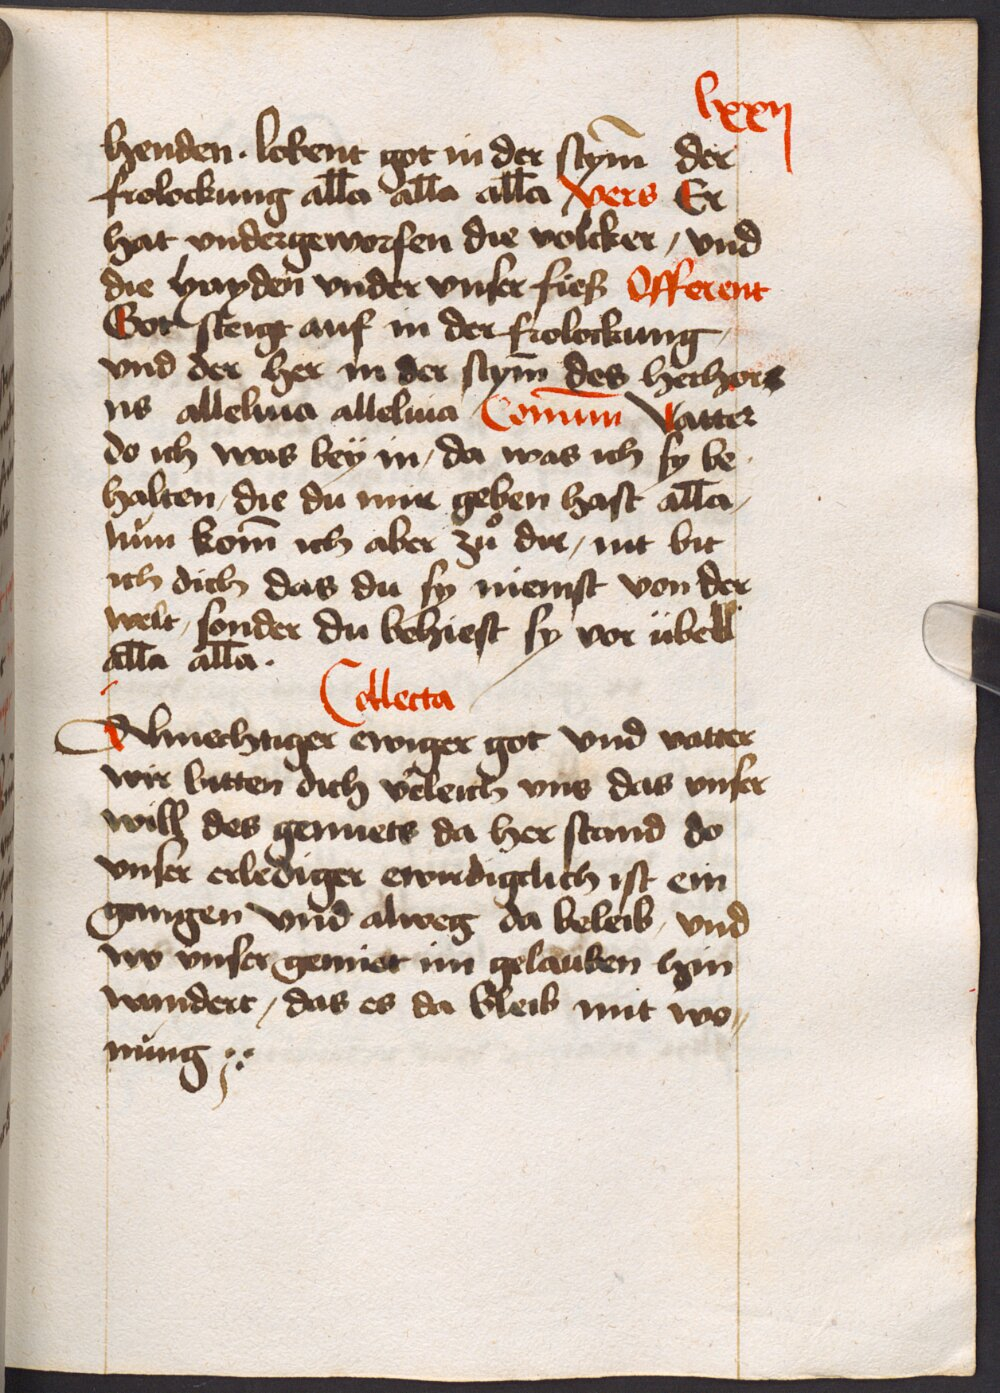 lxxij
henden · lobent got in der stym̄ der
frolockung all̄a all̄a all̄a vers Er
hat vndergeworfen die volcker / vnd
die hayden vnder vnser fieß Offerent
Got steigt auf in der frolockung /
vnd der her in der stym̄ des herhors
ns alleluia alleluia Com̄un Vatter
do ich was bey in / da was ich sy be
halten / die du mir geben hast all̄a /
nun kom̄ ich aber zuͦ dir / nit bit
ich dich das du sy niemst von der
welt / sonder du behiest sy vor übell
all̄a all̄a ·
Collecta
Almechtiger ewiger got vnd vatter
wir bitten dich v̄leich vns das vnser
will des gemuets da her stand do
vnser erlediger ewirdigclich ist ein
gangen vnd alweg da beleib / vnd
wo vnser gemiet im gelauben hin
wandert / das es da bleib mit wo„
nung